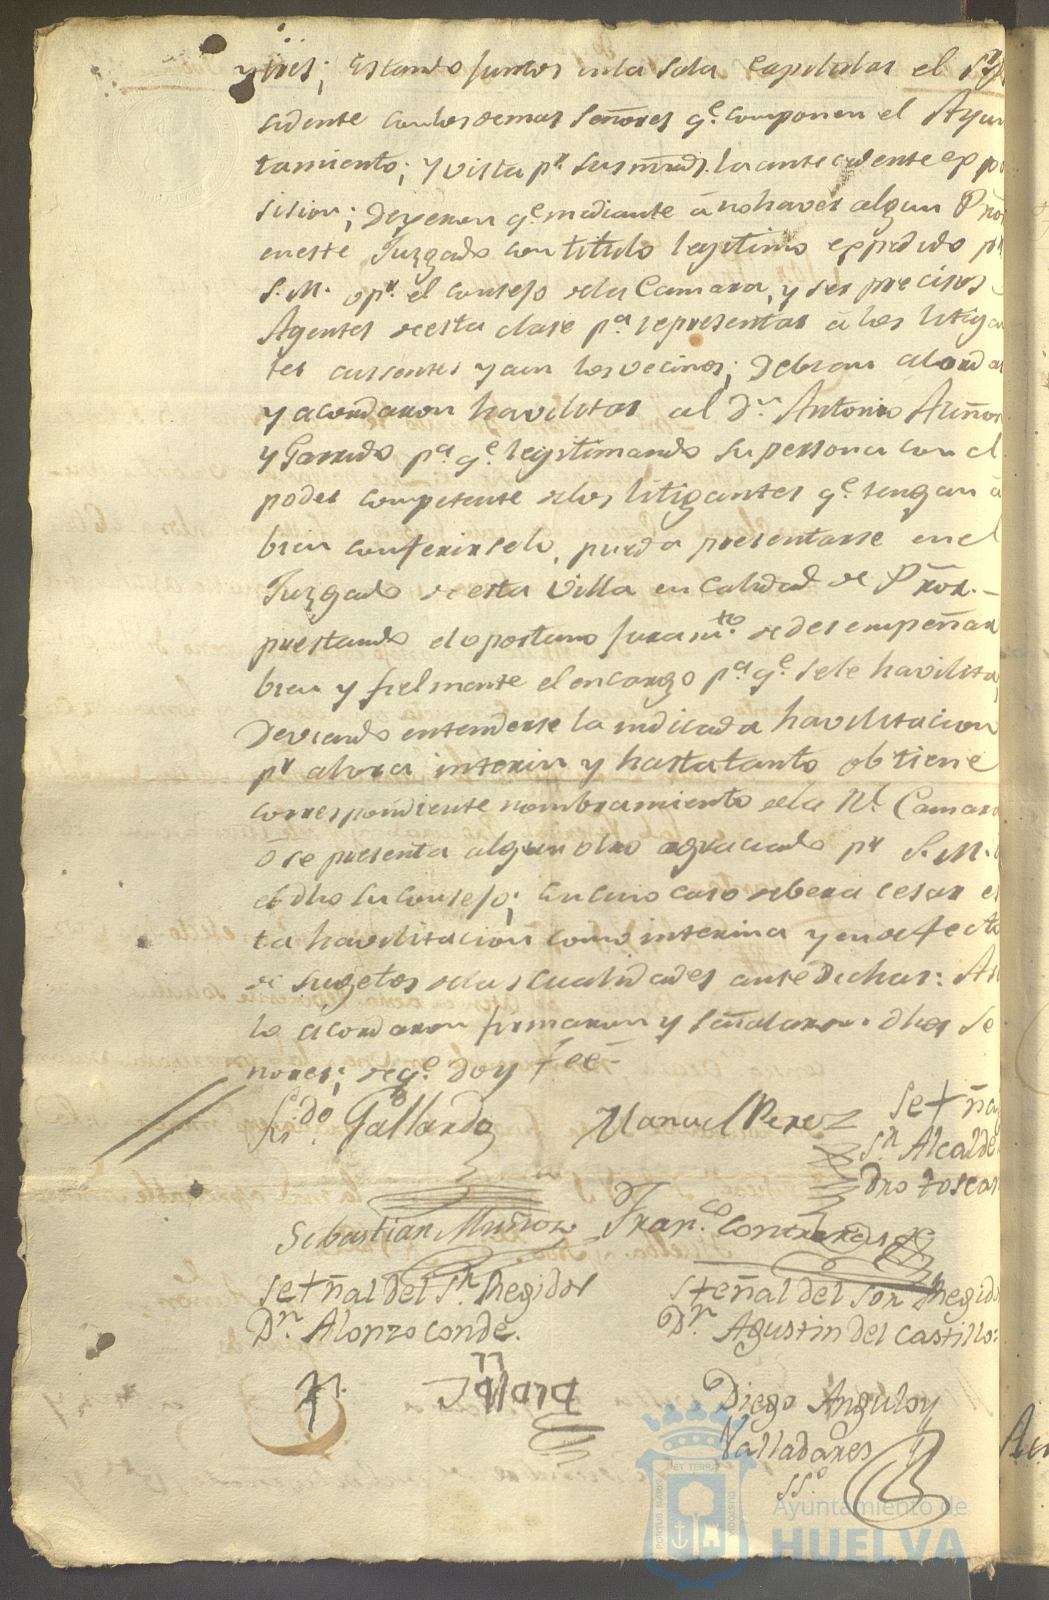 y tres; estando juntos en la Sala Capitular el Sr
cidente con los demas Señores qe. componen el Ayun
tamiento; y vista pr. sus mrds. la antecedente expo
sision; Dixeron qe. mediante â no haver algun Pror
en este Juzgado con titulo legitimo expedido pr
S.M. o pr. el consejo dela Camara, y ser precisos
Agentes de esta clase pa. representar â los litigan
tes ausentes y aun los vecinos; Debian acordar
y acordaron havilitar al Dn. Antonio Muños
y Garrido pa. qe. legitimando su persona con el
poder competente delos litigantes qe. tengan â
bien conferirselo, pueda presentarse en el
Juzgado de esta Villa en calidad de Pror.
prestando el oportuno juramto. de desempeñar
bien y fielmente el encargo pa. qe. se le havilita,
Deviendo entenderse la indicada havilitacion
pr ahora interin y hasta tanto obtiene
correspondiente nombramiento dela Rl. Camara
ô se presenta algun otro agraciado pr S.M.
el dho su consejo; en cuio caso debera cesar es
ta havilitacion como interina y en defecto
de sugetos delas cualidades ante dichas: Asi
lo acordaron firmaron y señalaron dhos Se
ñores; de qe. Doy feé
Lizdo. Gallardo Manuel Perez Se+ña
Sr Alcalde
Dro Toscan
Sebastian Muñoz Franco. Contreras
Se+ñal del Sr. Regidor S+eñal del Sor Regido
Dn. Alonzo Conde. Dn Agustin del Castillo:
Diego Angulo y
Valladares
SSo.
PORTUS MARIS ET TERRAE CUSTODIA
Ayuntamiento de
HUELVA